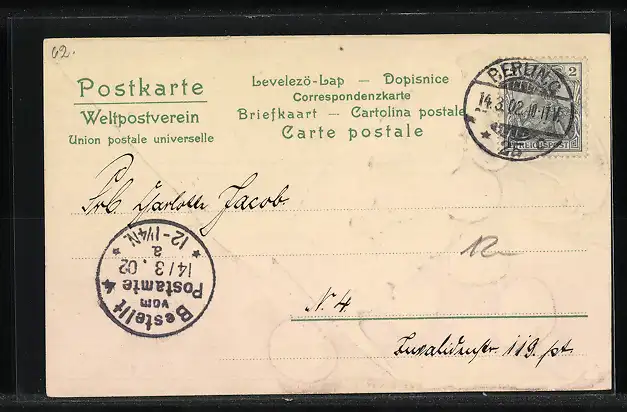 02.
Postkarte
Weltpostverein
Union postale universelle
Levelezö-Lap — Dopisnice
Correspondenzkarte
Briefkaart — Cartolina postale
Carte postale
BERLIN, C
14.3.02.10-11V.
* 2a *
2
REICHSPOST
Frl. Charlotte Jacob.
Bestellt
vom
Postamte 4
14/3.02
a
* 12-1¼N. *
N. 4.
Invalidenstr. 119. pt.